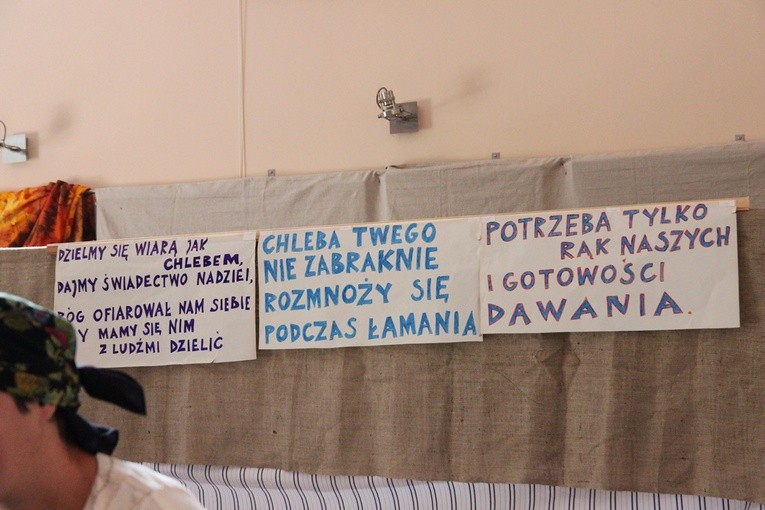 DZIELMY SIĘ WIARĄ JAK
CHLEBEM,
DAJMY ŚWIADECTWO NADZIEI,
BÓG OFIAROWAŁ NAM SIEBIE
MY MAMY SIĘ NIM
Z LUDŹMI DZIELIĆ
CHLEBA TWEGO
NIE ZABRAKNIE
ROZMNOŻY SIĘ
PODCZAS ŁAMANIA
POTRZEBA TYLKO
RĄK NASZYCH
I GOTOWOŚCI
DAWANIA.